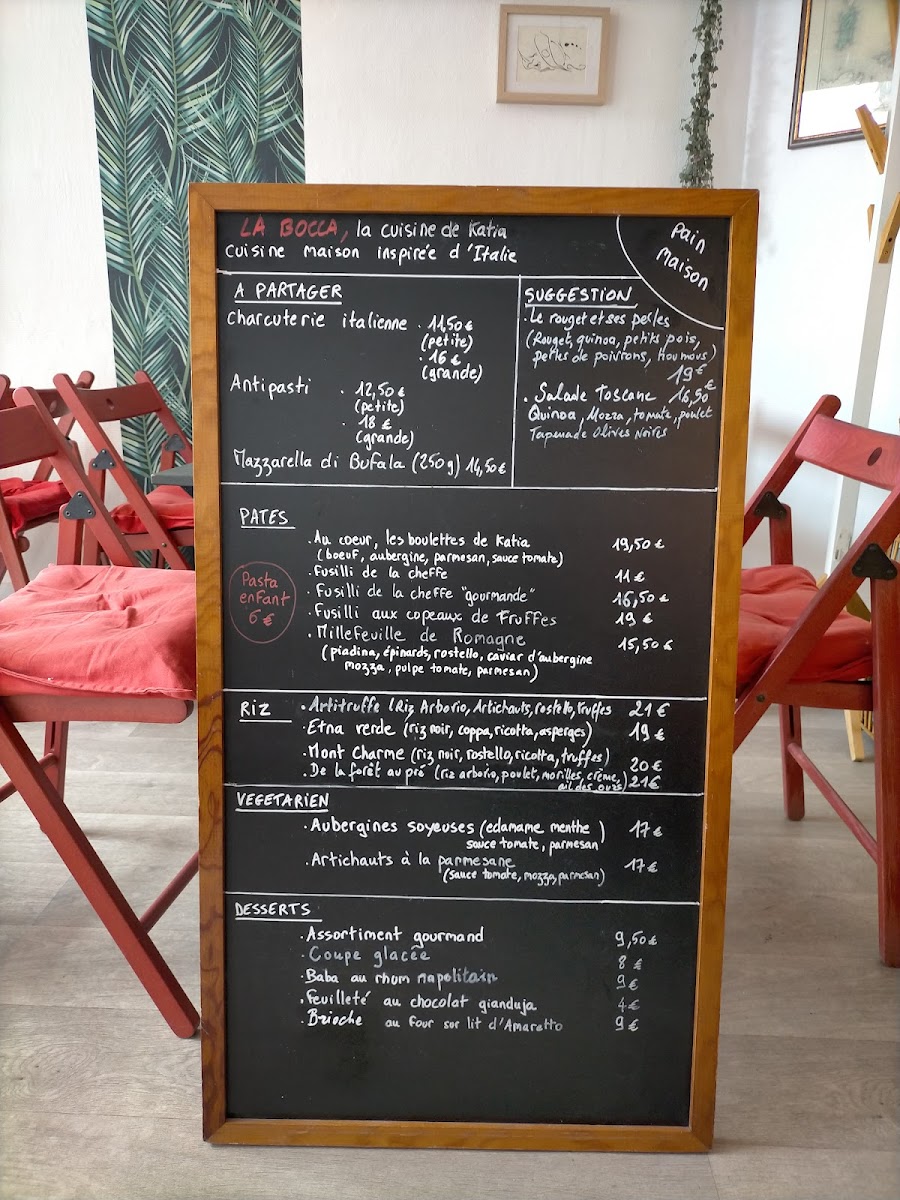 LA BOCCA, la cuisine de Katia
cuisine maison inspirée d'Italie
Pain
maison
A PARTAGER
Charcuterie italienne . 11,50 €
(petite)
. 16 €
(grande)
Antipasti . 12,50 €
(petite)
. 18 €
(grande)
Mazzarella di Bufala (250g) 14,50 €
SUGGESTION
. Le rouget et ses perles
(Rouget, quinoa, petits pois,
perles de poivrons, houmous)
19 €
. Salade Toscane 16,50 €
Quinoa, Mozza, tomate, poulet
Tapenade Olives Noires
PATES
. Au coeur, les boulettes de Katia 19,50 €
(boeuf, aubergine, parmesan, sauce tomate)
. Fusilli de la cheffe 11 €
. Fusilli de la cheffe "gourmande" 16,50 €
. Fusilli aux copeaux de Truffes 19 €
. Millefeuille de Romagne 15,50 €
(piadina, épinards, rostello, caviar d'aubergine
mozza, pulpe tomate, parmesan)
Pasta
enfant
6 €
RIZ
. Artitruffe (Riz Arborio, Artichauts, rostello, truffes 21 €
. Etna verde (riz noir, coppa, ricotta, asperges) 19 €
. Mont Charme (riz noir, rostello, ricotta, truffes) 20 €
. De la forêt au pré (riz arborio, poulet, morilles, crème, 21 €
ail des ours)
VEGETARIEN
. Aubergines soyeuses (edamame menthe 17 €
sauce tomate, parmesan)
. Artichauts à la parmesane 17 €
(sauce tomate, mozza, parmesan)
DESSERTS
. Assortiment gourmand 9,50 €
. Coupe glacée 8 €
. Baba au rhum napolitain 9 €
. Feuilleté au chocolat gianduja 4 €
. Brioche au four sur lit d'Amaretto 9 €